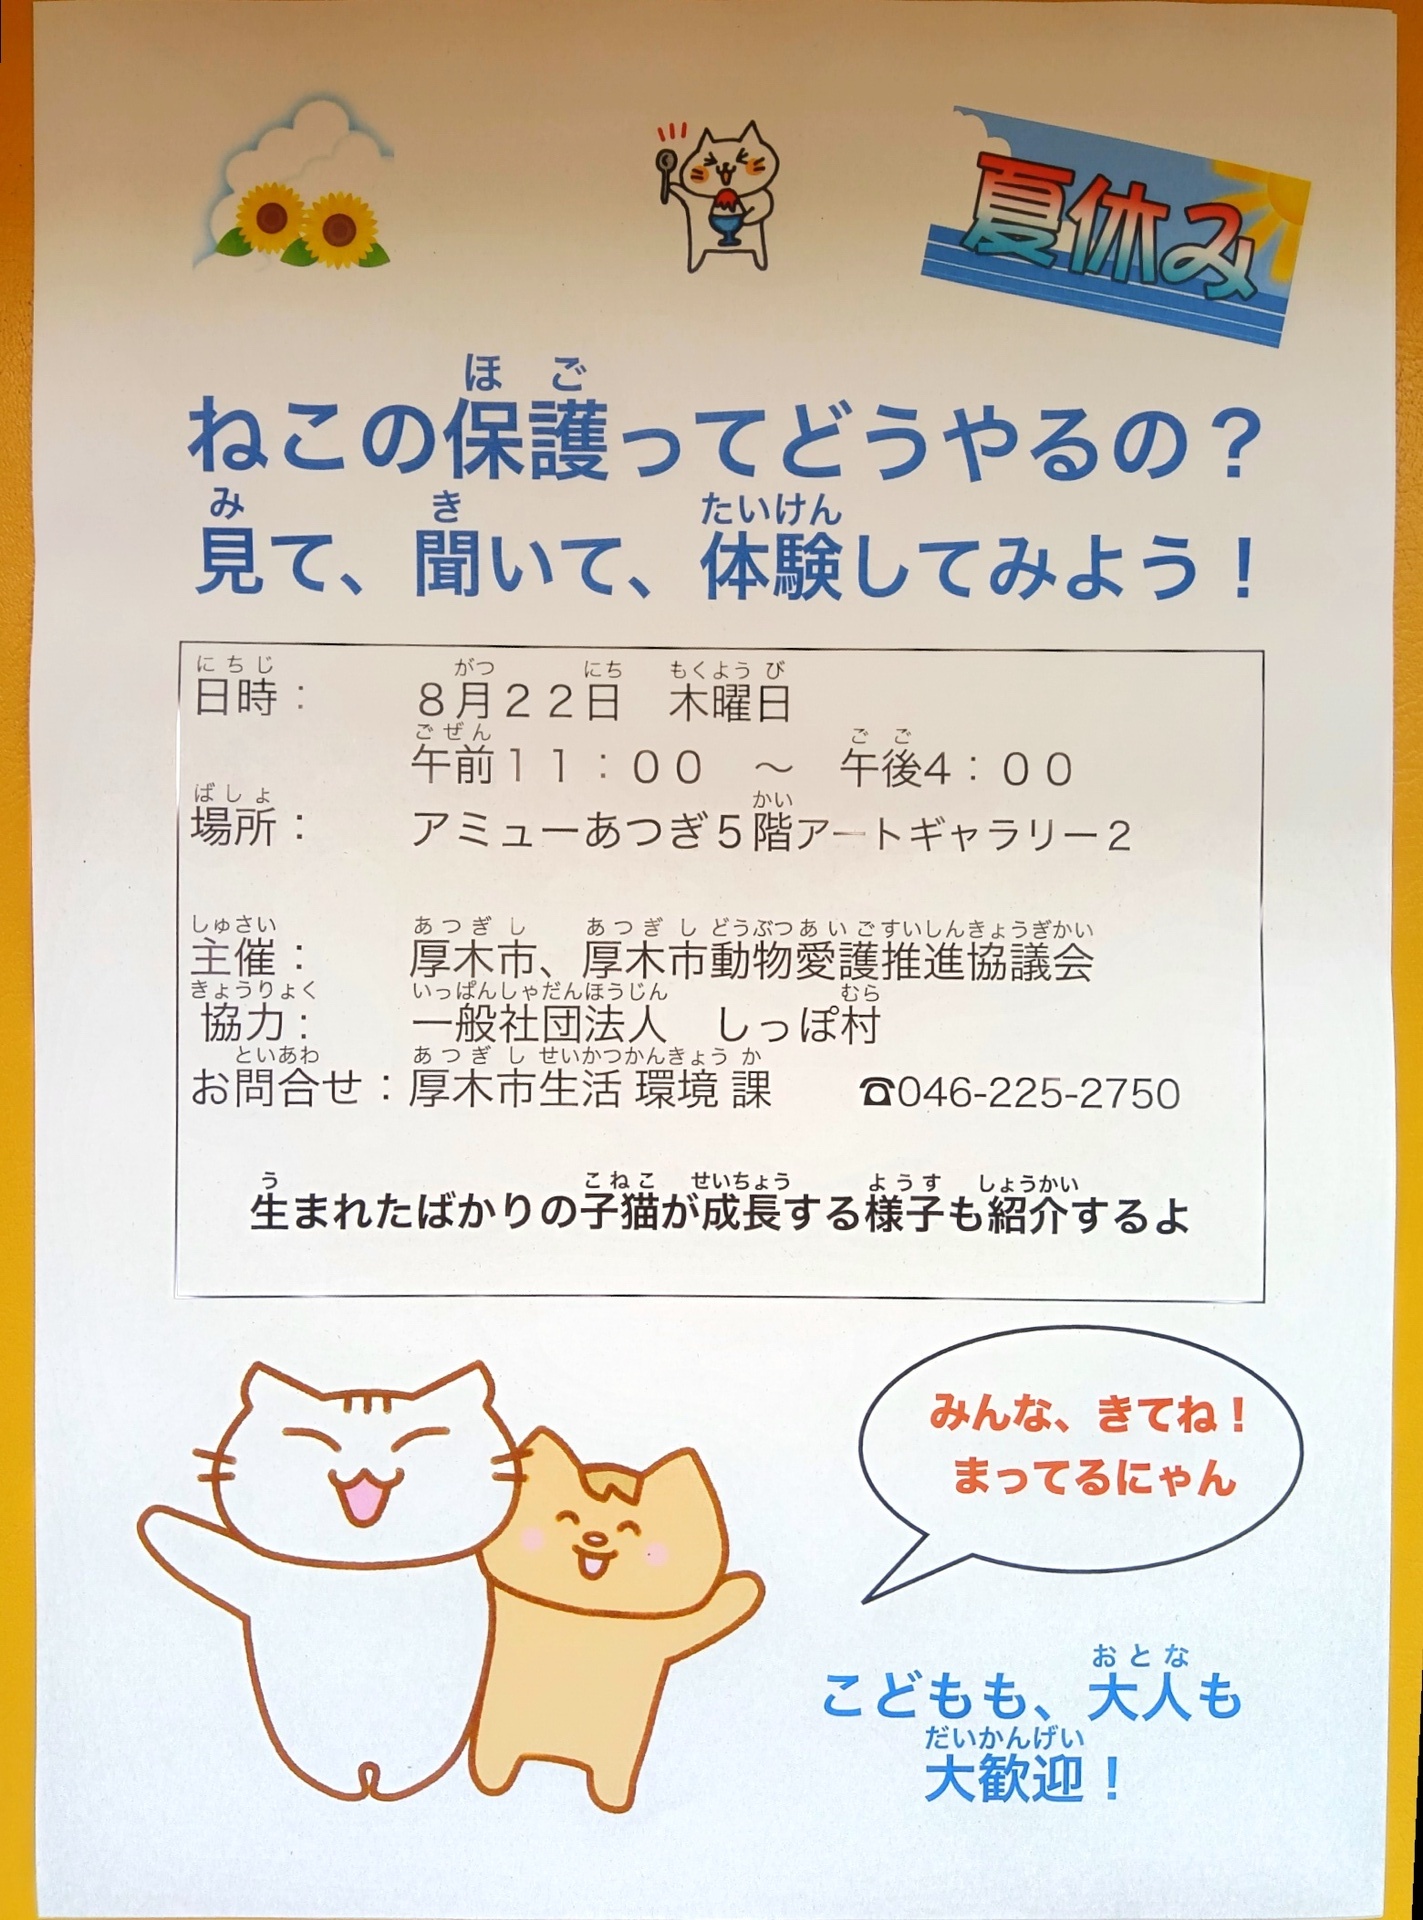 夏休み
ほ ご
ねこの保護ってどうやるの？
み き たいけん
見て、聞いて、体験してみよう！
にちじ がつ にち もくようび
日時： ８月２２日 木曜日
ごぜん ごご
午前１１：００ ～ 午後4：００
ばしょ かい
場所： アミューあつぎ５階アートギャラリー２
しゅさい あつぎし あつぎしどうぶつあいごすいしんきょうぎかい
主催： 厚木市、厚木市動物愛護推進協議会
きょうりょく いっぱんしゃだんほうじん むら
協力： 一般社団法人 しっぽ村
といあわ あつぎしせいかつかんきょうか
お問合せ：厚木市生活環境課 ☎046-225-2750
う こねこ せいちょう ようす しょうかい
生まれたばかりの子猫が成長する様子も紹介するよ
みんな、きてね！
まってるにゃん
おとな
こどもも、大人も
だいかんげい
大歓迎！